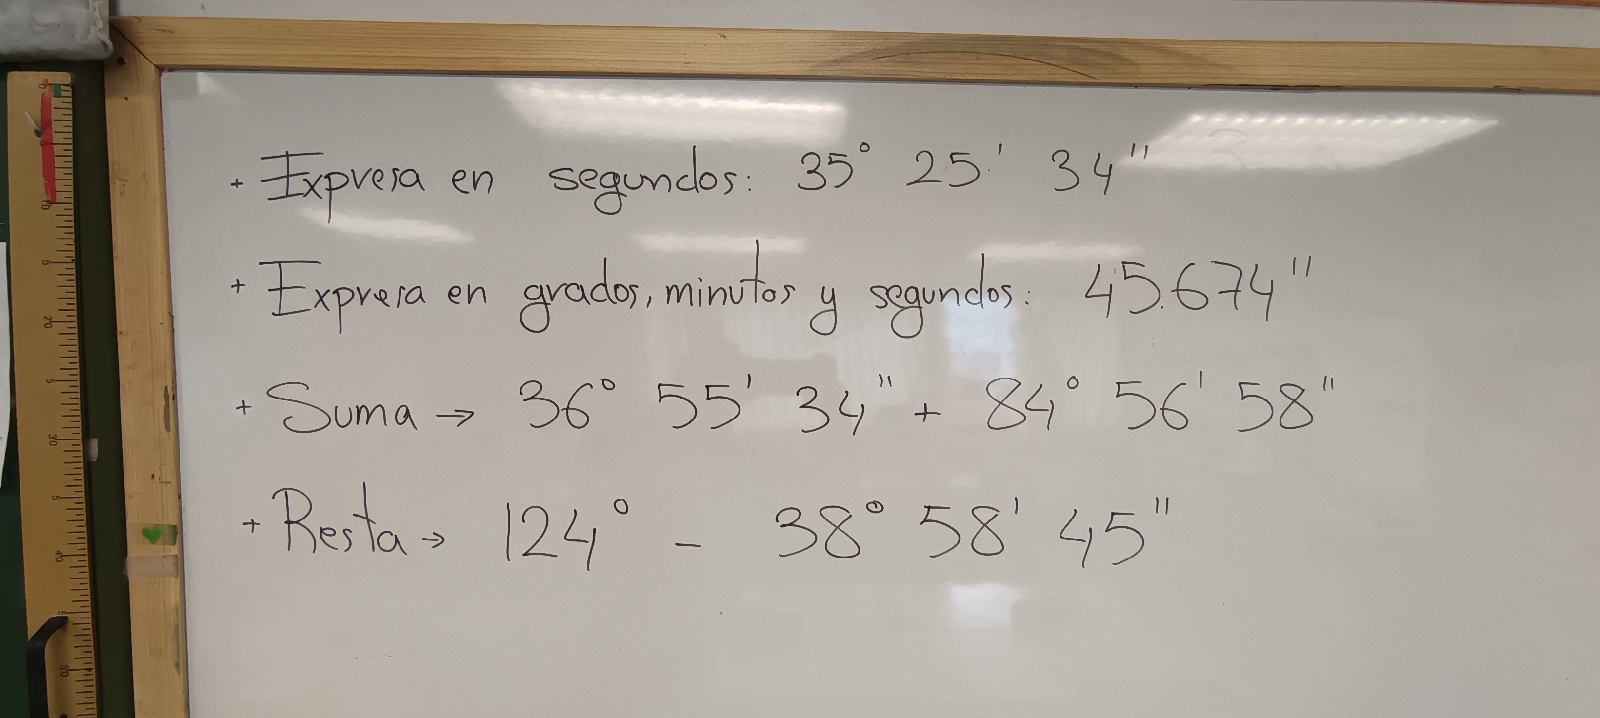 + Expresa en segundos: 35° 25' 34"
+ Expresa en grados, minutos y segundos: 45.674"
+ Suma → 36° 55' 34" + 84° 56' 58"
+ Resta → 124° - 38° 58' 45"